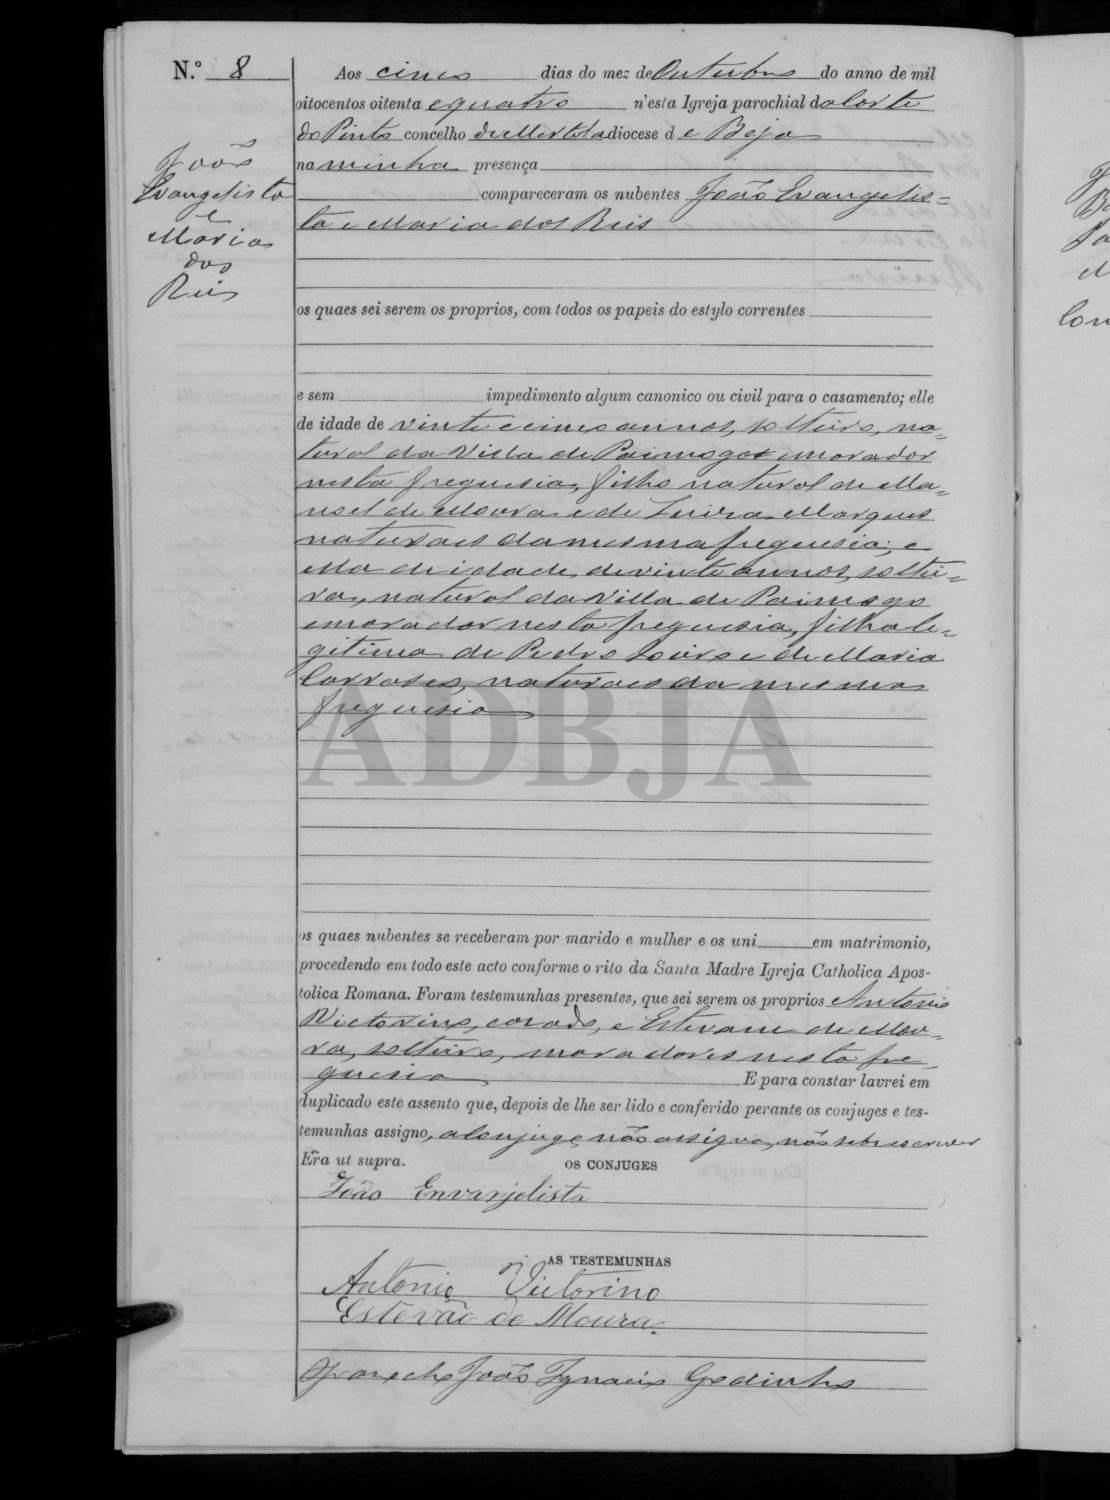 N.º 8
João
Evangelista
e
Maria
dos
Reis
Aos cinco dias do mez de Outubro do anno de mil
oitocentos oitenta e quatro n'esta Igreja parochial da Corte
do Pinto concelho de Mertola diocese de Beja
na minha presença
compareceram os nubentes João Evangelis=
ta e Maria dos Reis
os quaes sei serem os proprios, com todos os papeis do estylo correntes
e sem impedimento algum canonico ou civil para o casamento; elle
de idade de vinte e cinco annos, solteiro, na=
tural da Villa de Paimogo e morador
nesta freguesia, filho natural de Ma=
noel de Moura e de Luiza Marques
naturaes da mesma freguesia; e
ella de idade de vinte annos, soltei=
ra, natural da Villa de Paimogo
e morador nesta freguesia, filha le=
gitima de Pedro e de Maria
naturaes da mesma
freguesia
ADBJA
os quaes nubentes se receberam por marido e mulher e os uni em matrimonio,
procedendo em todo este acto conforme o rito da Santa Madre Igreja Catholica Apos-
tolica Romana. Foram testemunhas presentes, que sei serem os proprios Antonio
Victorino, casado, e Estevam de Mou=
ra, solteiro, moradores nesta fre=
guesia E para constar lavrei em
duplicado este assento que, depois de lhe ser lido e conferido perante os conjuges e tes-
temunhas assigno, a conjuge não assigna, não sabe escrever
Era ut supra.
OS CONJUGES
João Envanjelista
AS TESTEMUNHAS
Antonio Victorino
Estevão de Moura.
O Parocho João Ignacio Godinho